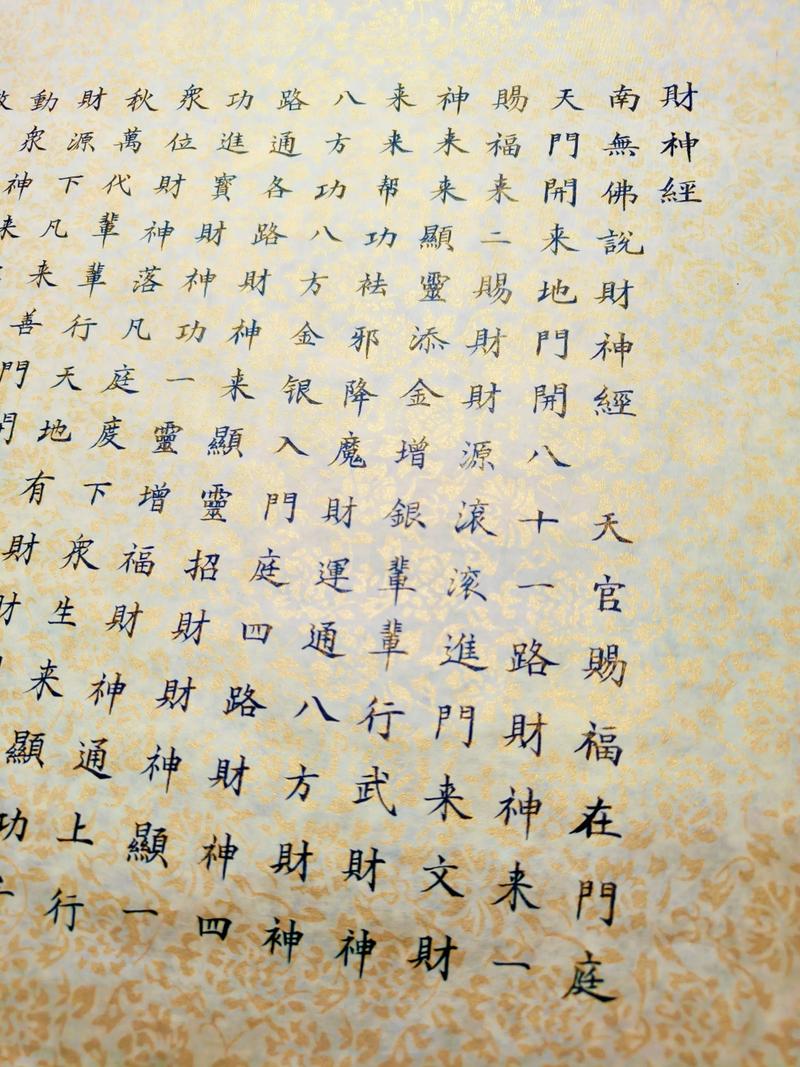 財神經
南無佛說財神經 天官賜福在門庭
天門開来地門開八十一路財神来一
賜福来二賜財財源滾滚進門来文財
神来来顯靈添金增銀輩輩行武財神
来来帮功祛邪降魔財運通八方財神
八方功八方金银入門庭四路財神四
路通各路財神来顯靈招財財神顯一
功進寳財神功一靈增福財神通上行
衆位財神落凡庭度下衆生来顯功
秋萬代輩輩行天地有財財
財源下凡来善門
動衆神来